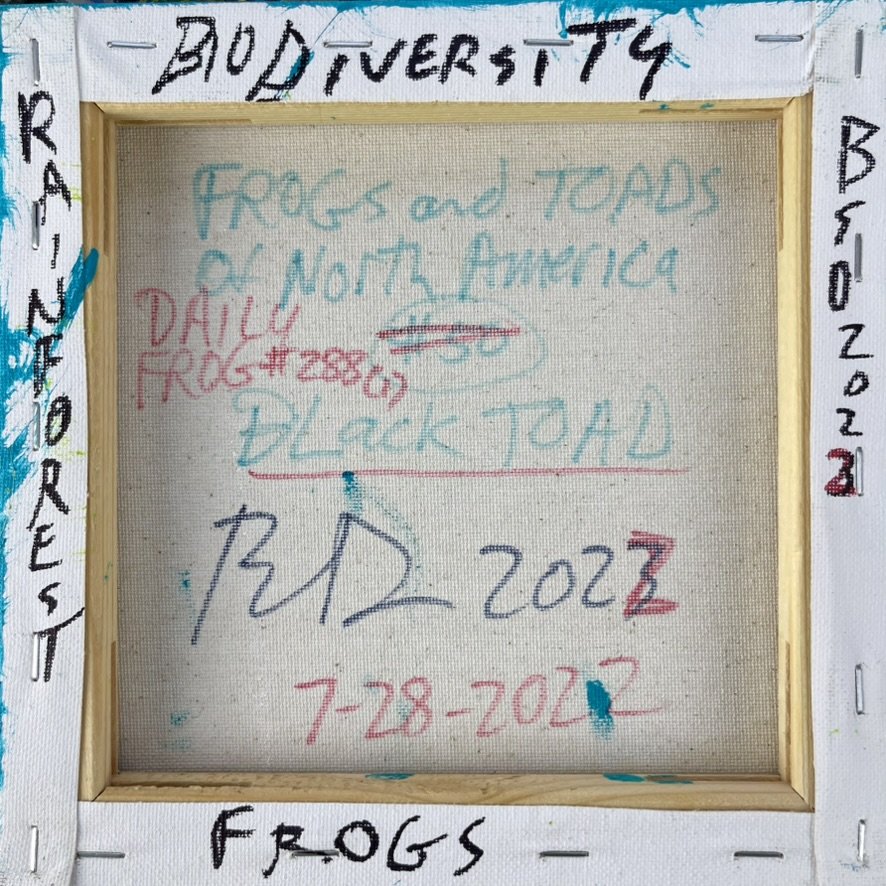 BIODIVERSITY
RAINFOREST
FROGS and TOADS
of North America
#50
DAILY
FROG #288(1)
BLack TOAD
2022
7-28-2022
FROGS